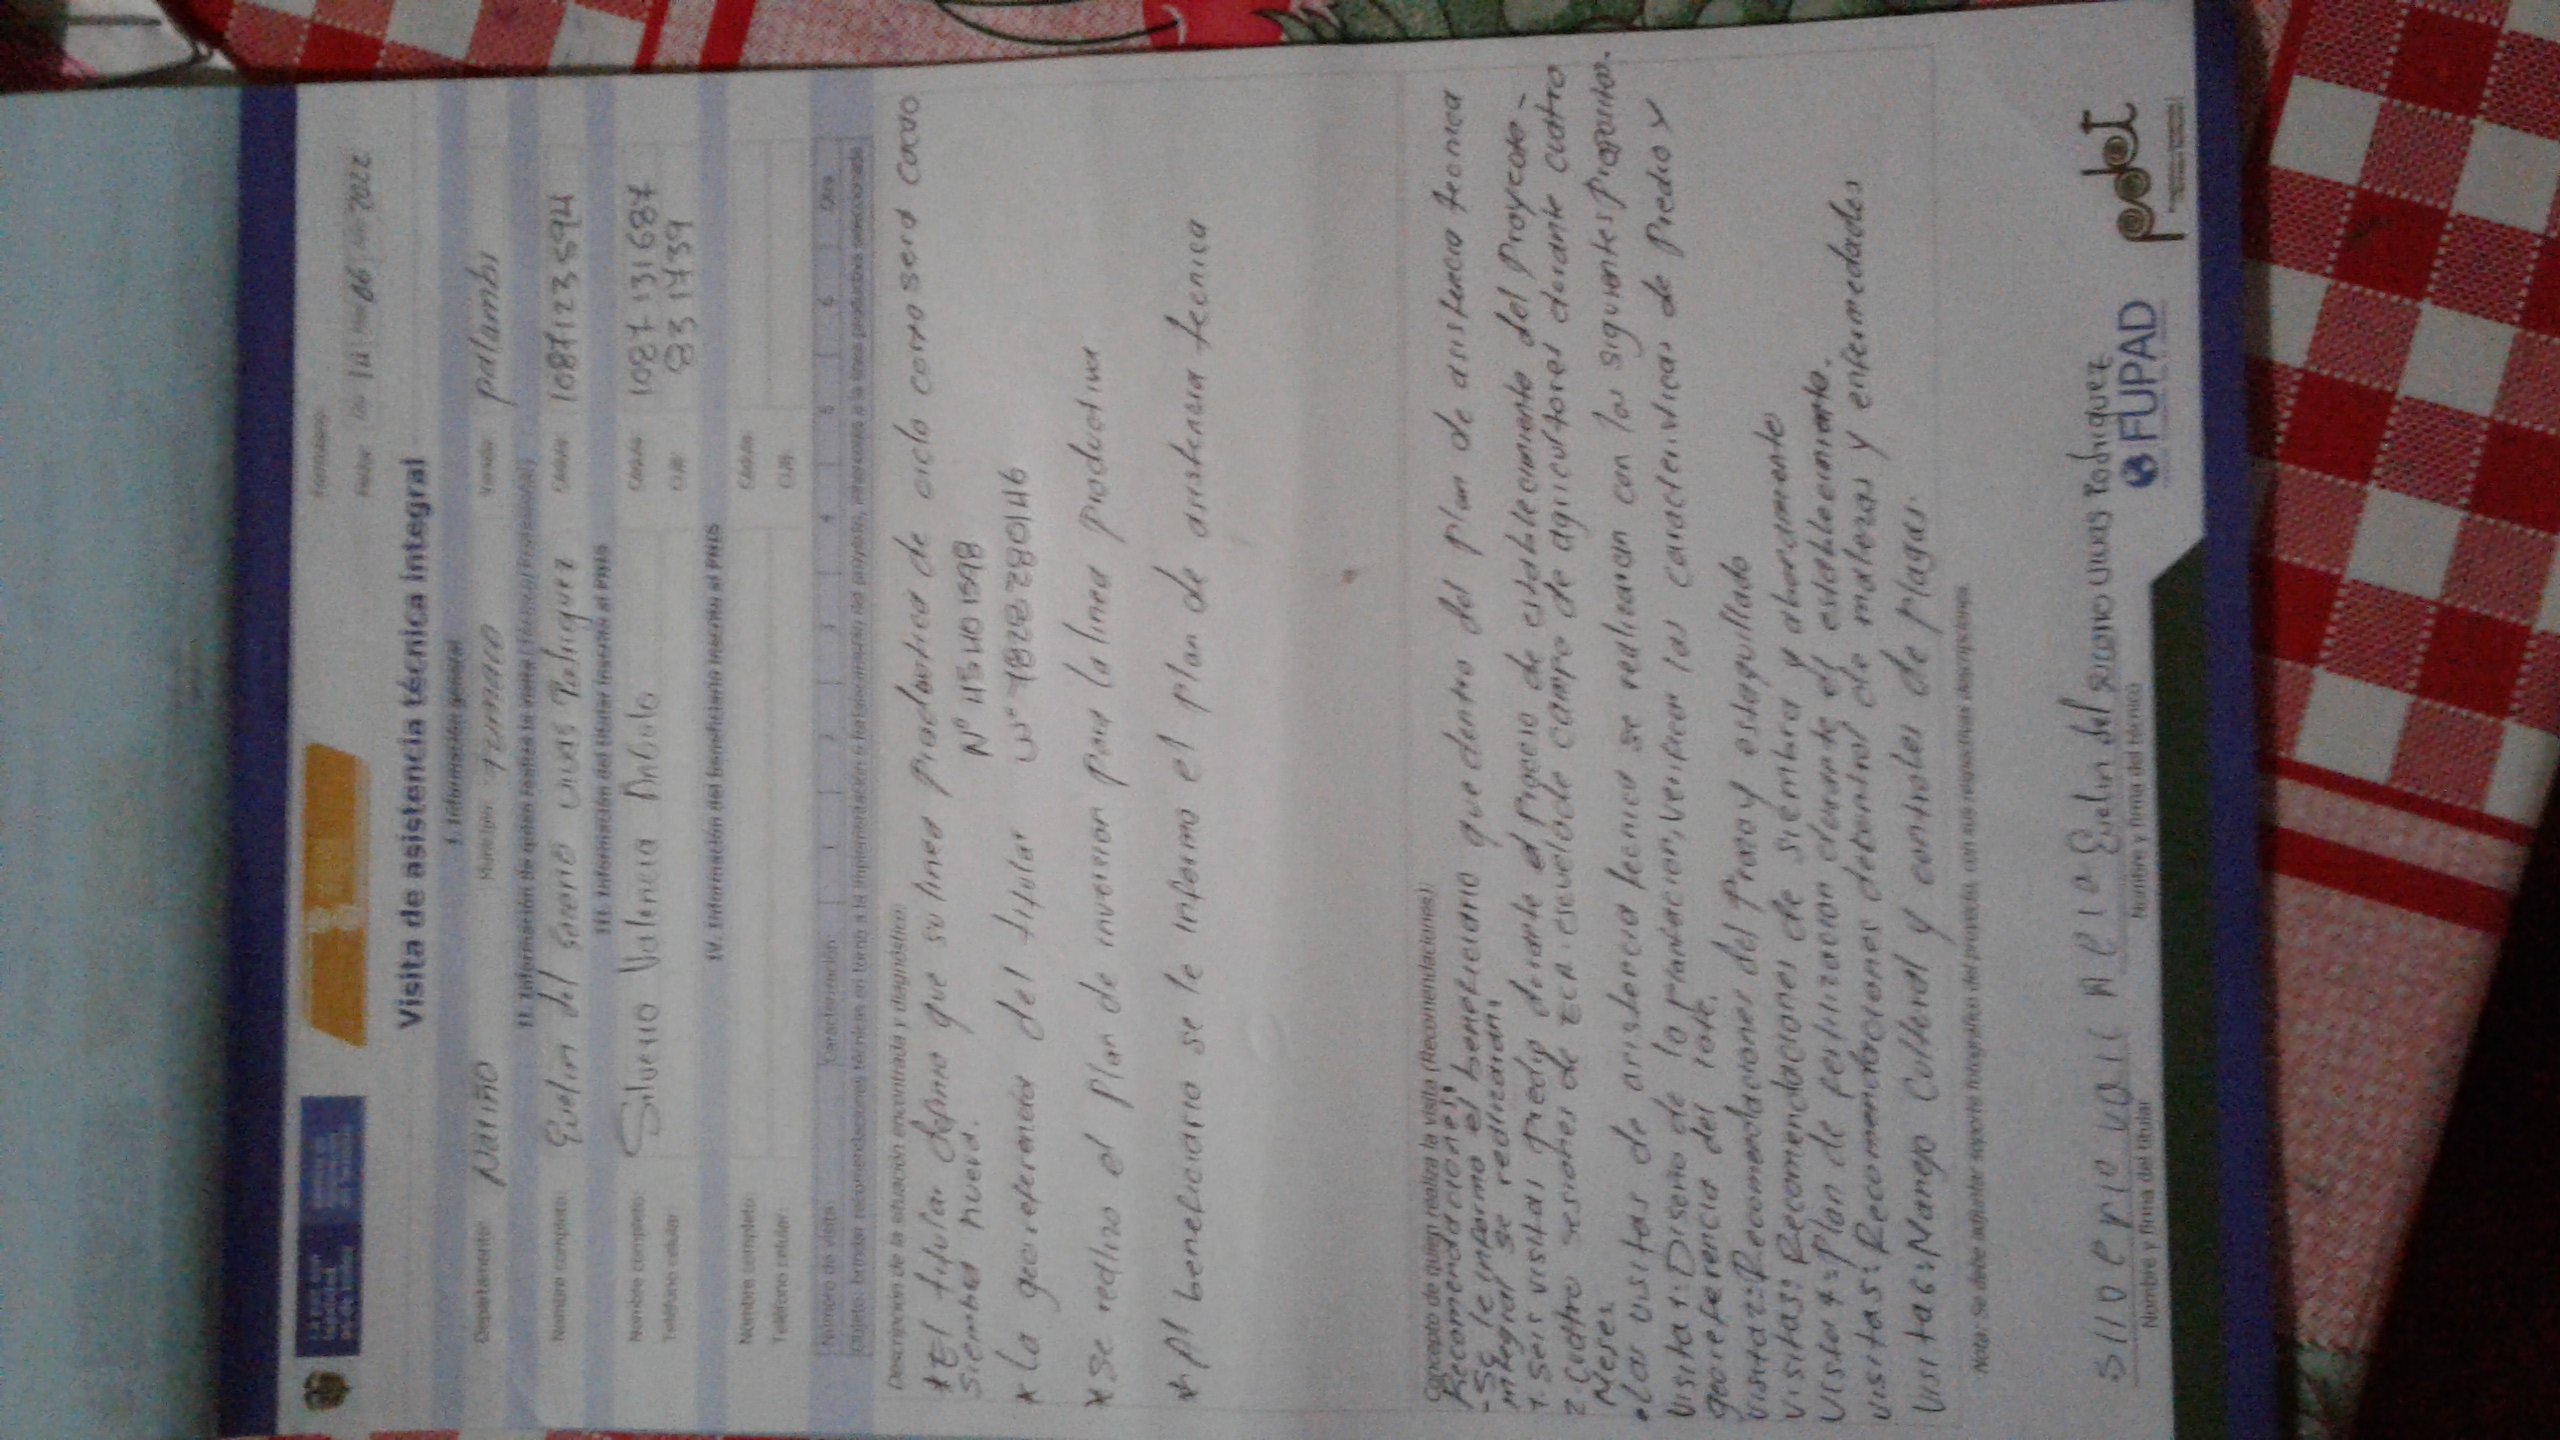 Formulario:
Fecha: Día 14 Mes 06 Año 2022
Visita de asistencia técnica integral
I. Información general
Departamento: Nariño Municipio: Tumaco Vereda: palambi
II. Información de quien realiza la visita
Nombre completo: Evelin del socorro vivas Cédula: 1087123594
III. Información del titular inscrito al PNIS
Nombre completo: Silverio Valencia Angulo Cédula: 1087131687
Teléfono celular: CUB: 831739
IV. Información del beneficiario inscrito al PNIS
Nombre completo: Cédula:
Teléfono celular: CUB:
Número de visita: Caracterización 1 2 3 4 5 6 Otra
Objeto: brindar recomendaciones técnicas en torno a la implementación o fortalecimiento del proyecto, inherentes a la línea productiva seleccionada
Descripción de la situación encontrada y diagnóstico:
* El titular definio que su linea productiva de ciclo corto sera cacao
siembra nueva. N° 1540 1598
* La georeferencia del titular W° 7828280146
* Se realizo el plan de inversion para la linea productiva
* Al beneficiario se le informo el plan de asistencia tecnica
Concepto de quien realiza la visita (Recomendaciones):
Recomendaciones:
- Se le informo el beneficiario que dentro del plan de asistencia tecnica
integral se realizaran:
1. Seis visitas predio durante el Proceso de establecimiento del Proyecto-
2. Cuatro sesiones de ECA: escuela de campo de agricultores durante cuatro
Meses.
• Las visitas de asistencia tecnica se realizaran con los siguientes Propositos.
Visita 1: Diseño de la Plantacion, verificar las caracteristicas de Predio y
georeferencia del lote.
Visita 2: Recomendaciones del Trazo y estaquillado
Visita 3: Recomendaciones de siembra y abonamiento
Visita 4: Plan de fertilizacion durante el establecimiento.
Visita 5: Recomendaciones de control de malezas y enfermedades
Visita 6: Manejo Cultural y controles de Plagas.
Nota: Se debe adjuntar soporte fotográfico del proyecto, con sus respectivas descripciones
Evelin del socorro vivas Rodriquez
Nombre y firma del titular Nombre y firma del técnico
FUPAD
pdet